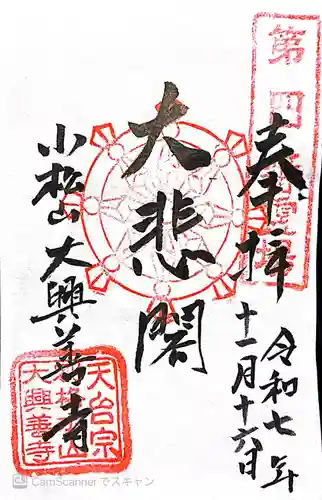 第四
奉拝
令和七年
十一月十六日
大悲閣
小松山大興善寺
天台宗
大興善寺
CamScanner でスキャン